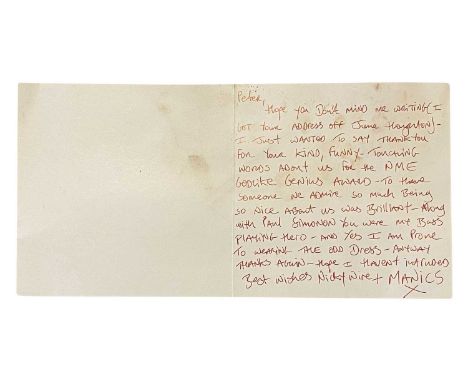 Peter,
Hope you Don't MIND me WRITING (I
GOT Your ADDRESS off June
I JUST WANTED TO SAY THANK YOU
FOR YOUR KIND, FUNNY - TOUCHING
WORDS ABOUT US FOR the NME
GODLIKE GENIUS AWARD - TO Have
Someone We ADMIRE SO MUCH BEING
SO NICE ABOUT US WAS BRILLIANT - Along
with PAUL SIMONON YOU were my BASS
PLAYING Hero - AND Yes I AM PRONE
TO WEARING THE ODD DRESS - ANYWAY
THANKS AGAIN - HOPE I HAVENT INTRUDED
Best WISHES Nicky Wire + MANICS
X